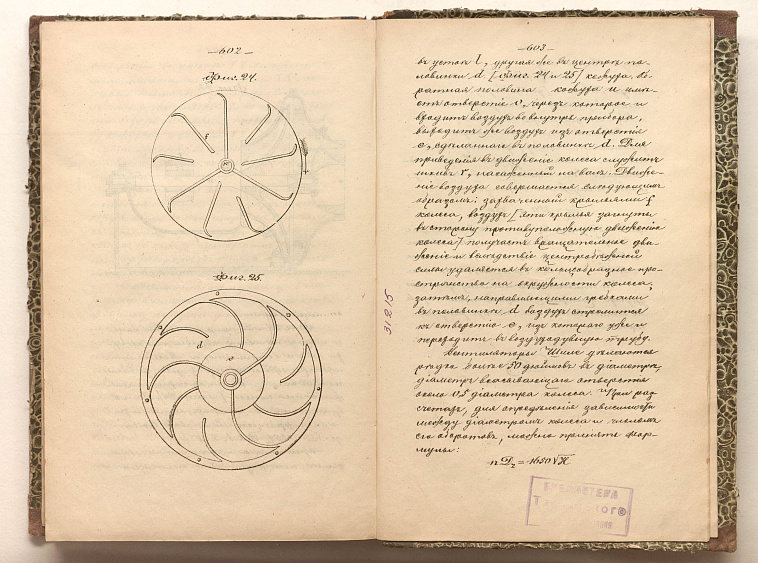 —602—
Фиг. 24.
f
Фиг. 25.
d
e
—603—
въ устоѣ l, другая же въ центрѣ по-
ловинки d (Фиг. 24 и 25) кожуха. Об-
ратная половина кожуха и имѣ-
етъ отверстіе v, черезъ которое и
входитъ воздухъ во внутрь прибора,
выходитъ же воздухъ изъ отверстія
e, сдѣланнаго въ половинкѣ d. Для
приведенія въ движеніе колеса служитъ
шкивъ r, насаженный на валъ. Движе-
ніе воздуха совершается слѣдующимъ
образомъ: захваченный крыльями f
колеса, воздухъ (эти крылья загнуты
въ сторону противуположную движенію
колеса) получаетъ вращательное дви-
женіе и вслѣдствіе центробѣжной
силы удаляется въ кольцеобразное про-
странство на окружности колеса,
затѣмъ, направляющими гребнями
въ половинкѣ d воздухъ стремится
къ отверстію e, изъ котораго уже и
переходитъ въ воздуходувную трубу.
Вентиляторы Шиле дѣлаются
рѣдко болѣе 50 дюймовъ въ діаметрѣ,
діаметръ всасывающаго отверстія
около 0,5 діаметра колеса. При раз-
счетахъ, для опредѣленія зависимости
между діаметромъ колеса и числомъ
его оборотовъ, можно принять фор-
мулы:
n D₂ = 1650 √H
31215
БИБЛИОТЕКА